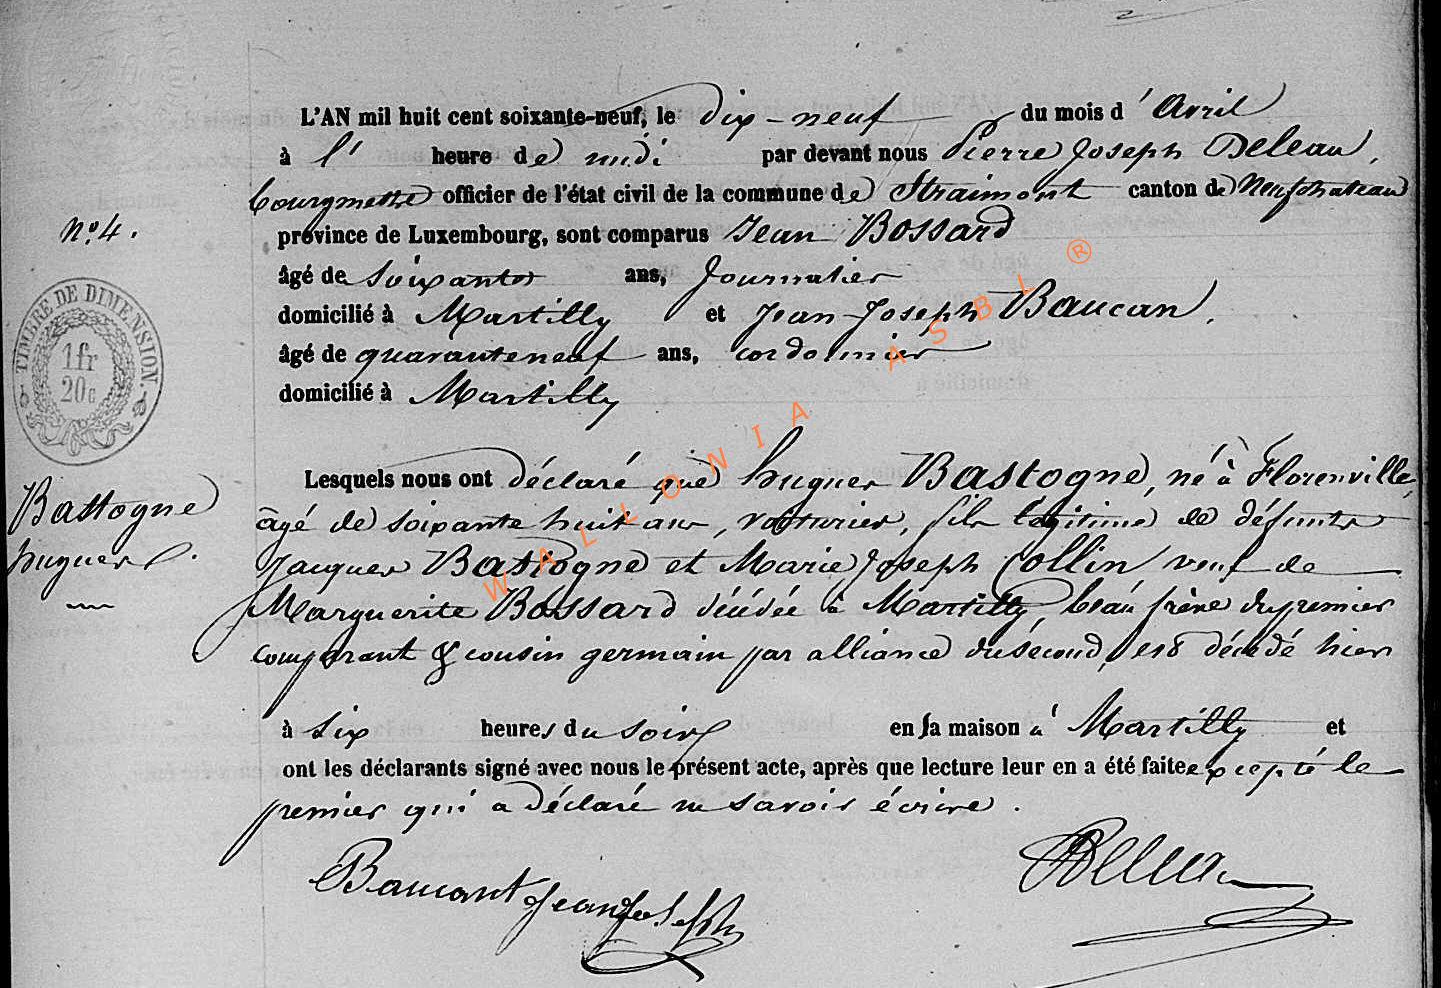 L'AN mil huit cent soixante-neuf, le dix-neuf du mois d'Avril
à l' heure de midi par devant nous Pierre Joseph Deleau,
bourgmestre officier de l'état civil de la commune de Straimont canton de Neufchateau
N°. 4. province de Luxembourg, sont comparus Jean Bossard
âgé de soixante ans, Journalier
domicilié à Martilly et Jean-Joseph Baucan,
âgé de quaranteneuf ans, cordonnier
domicilié à Martilly
TIMBRE DE DIMENSION.
1 fr
20 c
Lesquels nous ont déclaré que hugues Bastogne, né à Florenville,
Bastogne
hugues
âgé de soixante huit ans, voiturier, fils légitime de défunts
Jacques Bastogne et Marie Joseph Collin veuf de
Marguerite Bossard décédée à Martilly, beau frère du premier
comparant & cousin germain par alliance du second, est décédé hier
à six heures du soir en sa maison à Martilly et
ont les déclarants signé avec nous le présent acte, après que lecture leur en a été faite excepté le
premier qui a déclaré ne savoir écrire.
Baucant Jean Joseph
WALLONIA ASBL ®